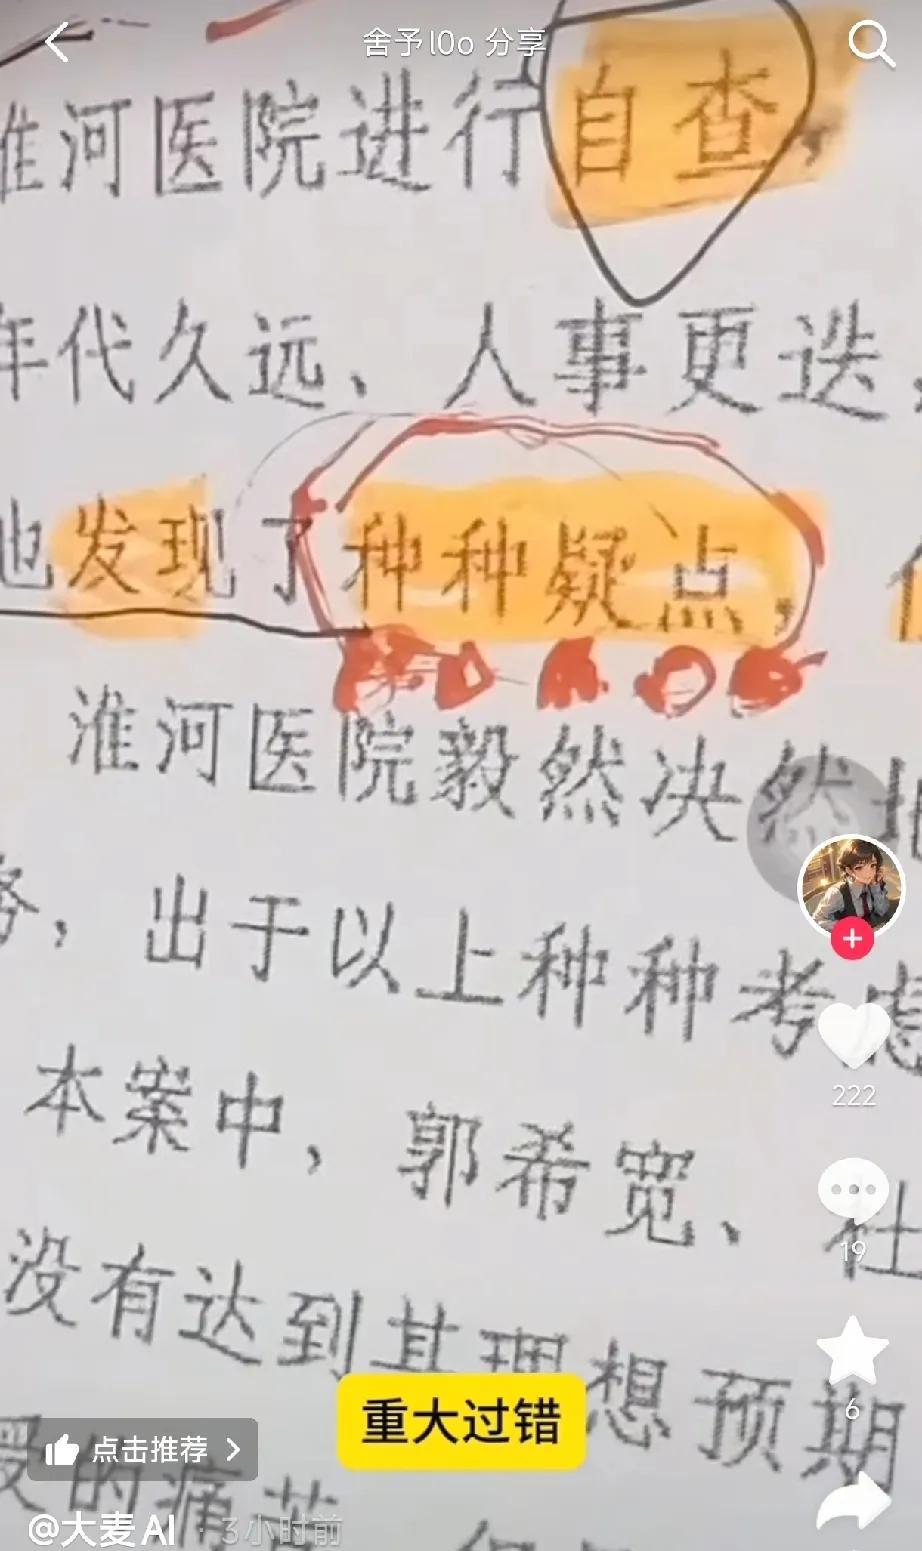 舍予l0o 分享
淮河医院进行自查,
年代久远、人事更迭,
也发现了种种疑点,
淮河医院毅然决然地
务,出于以上种种考虑
本案中,郭希宽、杜
没有达到其理想预期
222
19
6
重大过错
点击推荐
的痛苦
@大麦AI · 3小时前